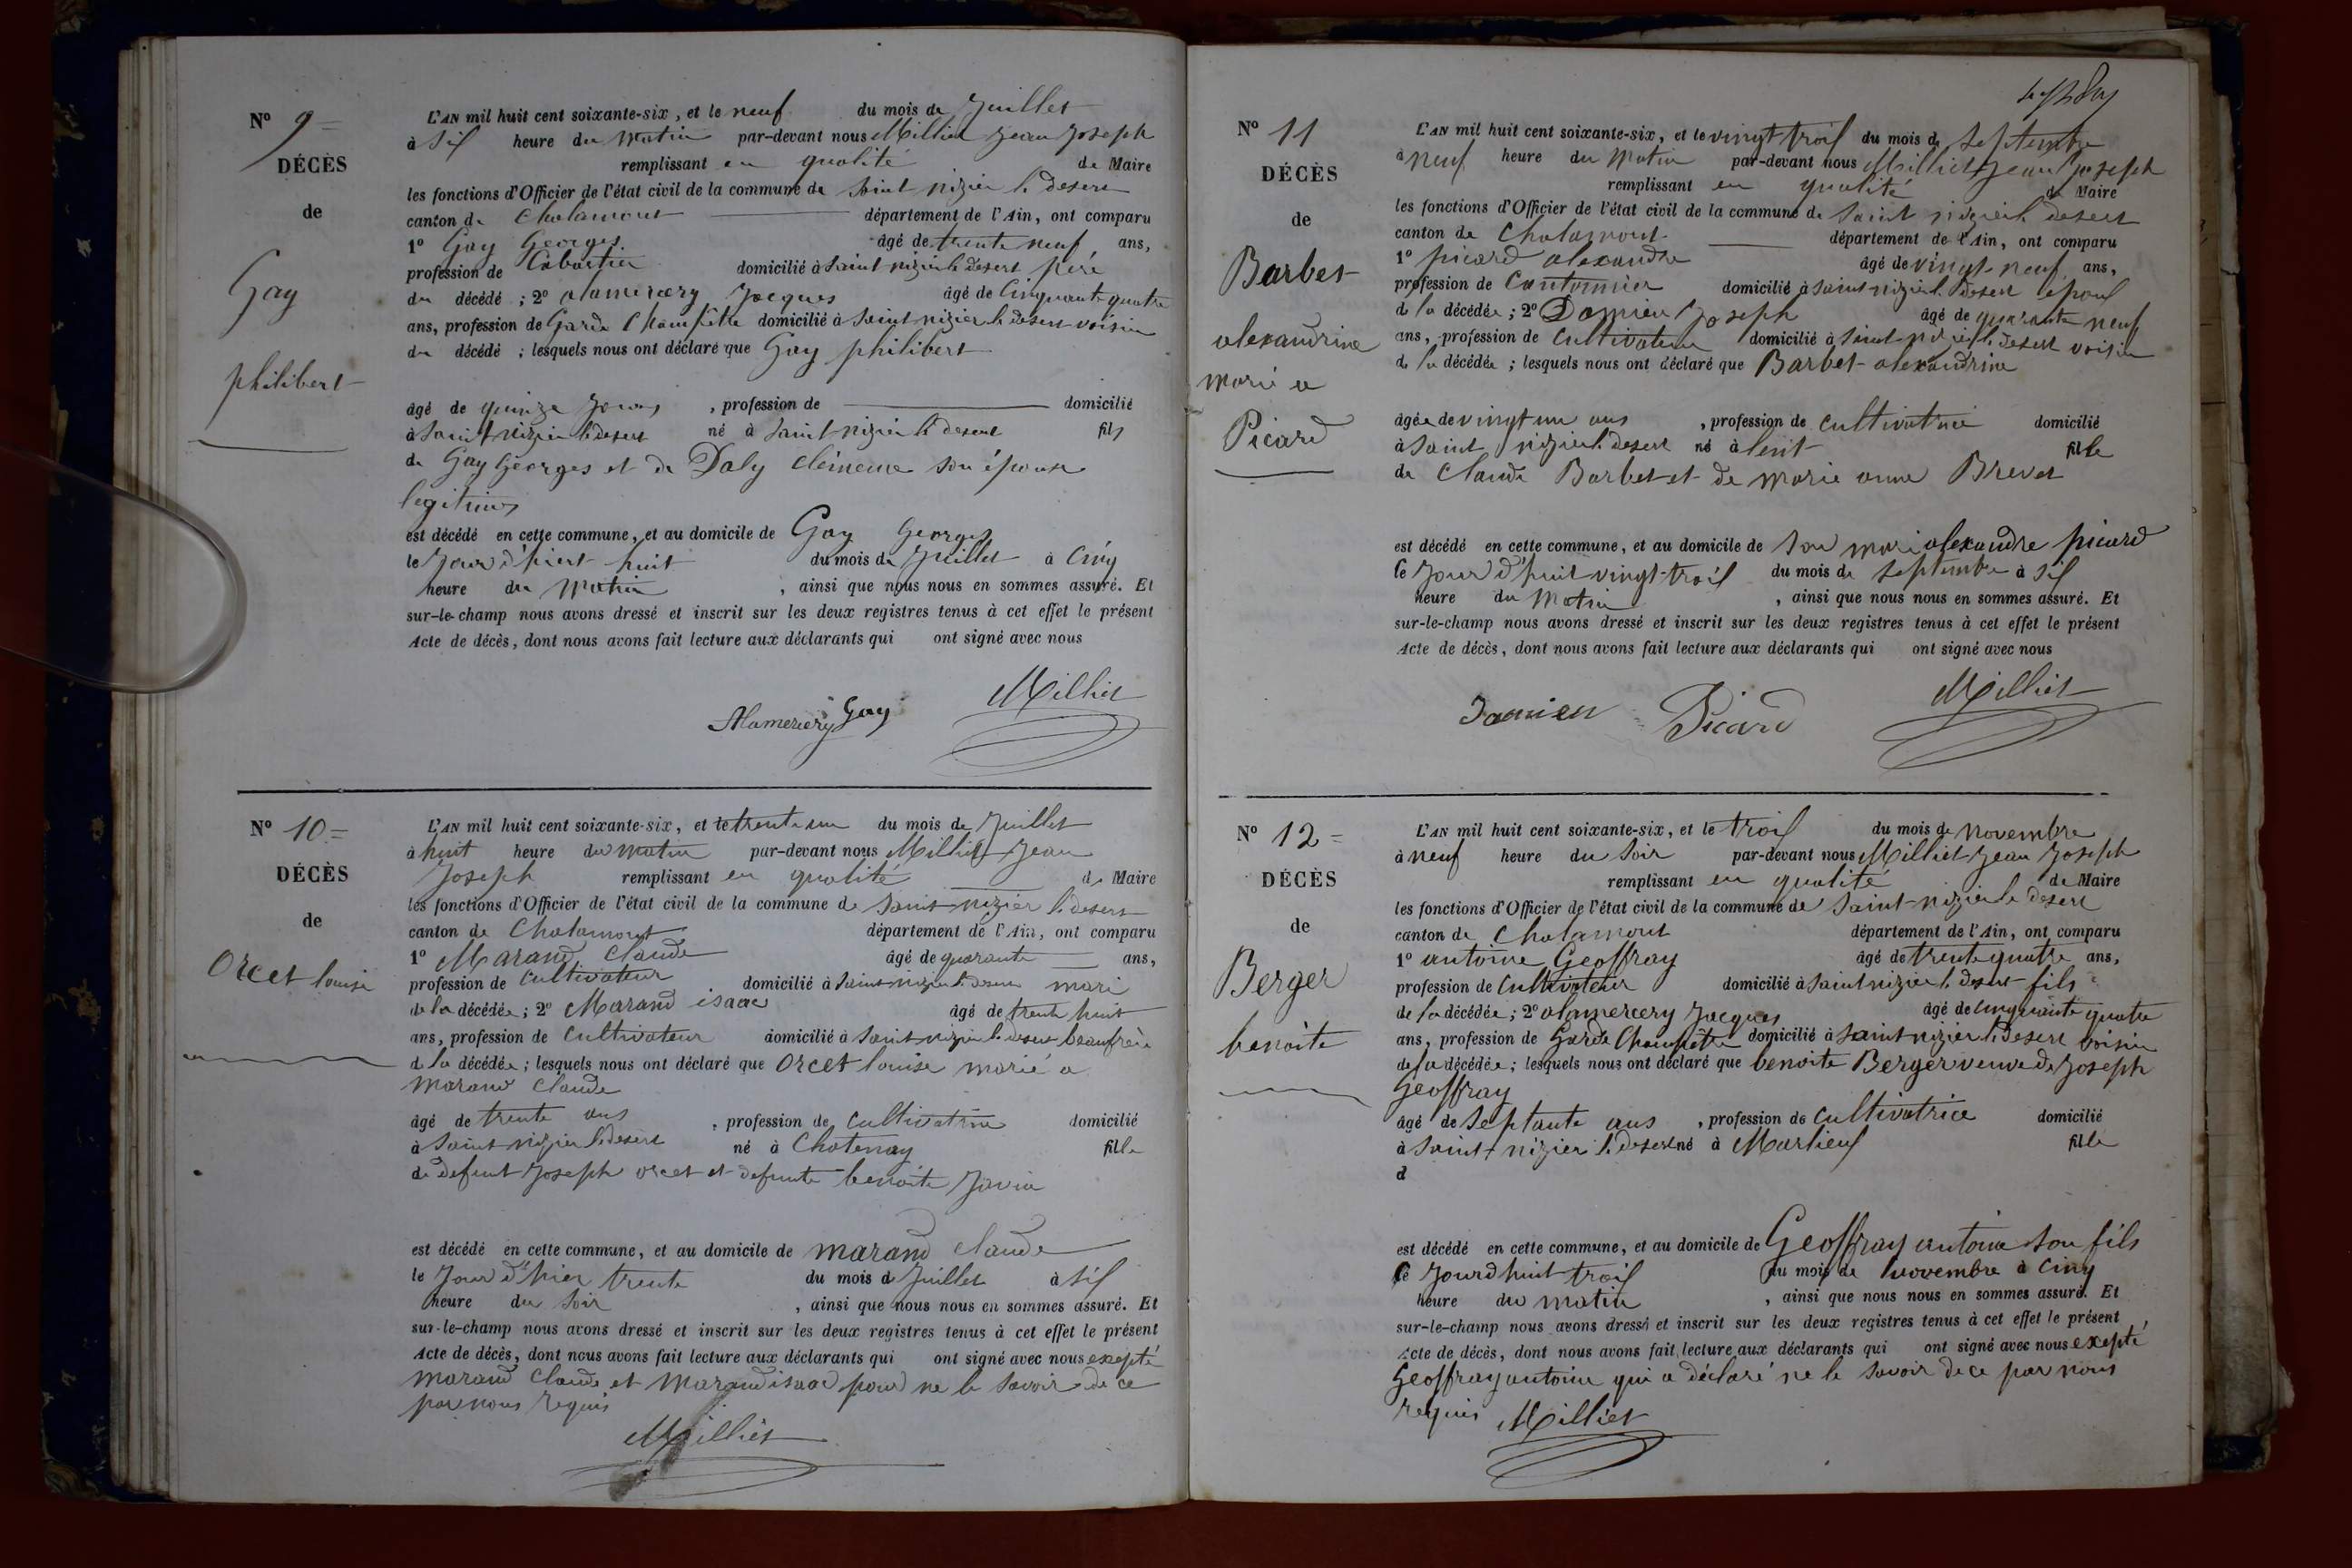 N° 9=
DÉCÈS
de
Gay
philibert
L'AN mil huit cent soixante-six, et le neuf du mois de Juillet
à Six heure du Matin par-devant nous Milliet Jean Joseph
remplissant en qualité de Maire
les fonctions d'Officier de l'état civil de la commune de Saint nizier le desert
canton de Chalamont département de l'Ain, ont comparu
1° Gay Georges âgé de trente neuf ans,
profession de Cabartier domicilié à Saint nizier le desert père
du décédé ; 2° alamercery Jacques âgé de Cinquante quatre
ans, profession de Garde Champêtre domicilié à Saint nizier le desert voisin
du décédé ; lesquels nous ont déclaré que Gay philibert
âgé de quinze Jours , profession de domicilié
à Saint nizier le desert né à Saint nizier le desert fils
de Gay Georges et de Daly clémence son épouse
legitime
est décédé en cette commune, et au domicile de Gay Georges
le Jour d'hiert huit du mois de Juillet à Cinq
heure du Matin , ainsi que nous nous en sommes assuré. Et
sur-le-champ nous avons dressé et inscrit sur les deux registres tenus à cet effet le présent
Acte de décès, dont nous avons fait lecture aux déclarants qui ont signé avec nous
Alamercery Gay Milliet
N° 10=
DÉCÈS
de
Orcet louise
L'AN mil huit cent soixante-six, et le trente un du mois de Juillet
à huit heure du matin par-devant nous Milliet Jean
Joseph remplissant en qualité de Maire
les fonctions d'Officier de l'état civil de la commune de Saint nizier le desert
canton de Chalamont département de l'Ain, ont comparu
1° Marand Claude âgé de quarante ans,
profession de Cultivateur domicilié à Saint nizier le desert mari
de la décédée ; 2° Marand isaac âgé de trente huit
ans, profession de Cultivateur domicilié à Saint nizier le desert beaufrère
de la décédée ; lesquels nous ont déclaré que Orcet louise marié a
marand Claude
âgé de trente ans , profession de Cultivatrice domicilié
à Saint nizier le desert né à Chatenay fille
de defunt Joseph orcet et defunte benoite
est décédé en cette commune, et au domicile de marand Claude
le Jour d'hier trente du mois d Juillet à Six
heure du Soir , ainsi que nous nous en sommes assuré. Et
sur-le-champ nous avons dressé et inscrit sur les deux registres tenus à cet effet le présent
Acte de décès, dont nous avons fait lecture aux déclarants qui ont signé avec nous excepté
marand Claude et Marand isaac pour ne le Savoir de ce
par nous requis
Milliet
N° 11
DÉCÈS
de
Barbet
alexandrine
marié a
Picard
L'AN mil huit cent soixante-six, et le vingt trois du mois de Septembre
à neuf heure du Matin par-devant nous Milliet Jean Joseph
remplissant en qualité de Maire
les fonctions d'Officier de l'état civil de la commune de Saint nizier le desert
canton de Chalamont département de l'Ain, ont comparu
1° picard alexandre âgé de vingt-neuf ans,
profession de Cantonnier domicilié à Saint nizier le desert époux
de la décédée ; 2° Damien Joseph âgé de quarante neuf
ans, profession de Cultivateur domicilié à Saint-nizier le desert voisin
de la décédée ; lesquels nous ont déclaré que Barbet alexandrine
âgée de vingt un ans , profession de Cultivatrice domicilié
à Saint nizier le desert né à lent fille
de Claude Barbet et de marie anne Brevet
est décédé en cette commune, et au domicile de Son mari alexandre picard
le Jour d'huit vingt-trois du mois de Septembre à Six
heure du Matin , ainsi que nous nous en sommes assuré. Et
sur-le-champ nous avons dressé et inscrit sur les deux registres tenus à cet effet le présent
Acte de décès, dont nous avons fait lecture aux déclarants qui ont signé avec nous
Damien Picard Milliet
N° 12=
DÉCÈS
de
Berger
benoite
L'AN mil huit cent soixante-six, et le trois du mois de novembre
à neuf heure du Soir par-devant nous Milliet Jean Joseph
remplissant en qualité de Maire
les fonctions d'Officier de l'état civil de la commune de Saint-nizier le desert
canton de Chalamont département de l'Ain, ont comparu
1° antoine Geoffray âgé de trente quatre ans,
profession de Cultivateur domicilié à Saint nizier le desert fils
de la décédée ; 2° alamercery Jacques âgé de Cinquante quatre
ans, profession de Garde Champêtre domicilié à Saint nizier le desert voisin
de la décédée ; lesquels nous ont déclaré que benoite Berger veuve de Joseph
Geoffray
âgé de Septante ans , profession de Cultivatrice domicilié
à Saint nizier le desert né à Marlieux fille
d
est décédé en cette commune, et au domicile de Geoffray antoine son fils
le Jourd huit trois du mois de novembre à Cinq
heure du matin , ainsi que nous nous en sommes assuré. Et
sur-le-champ nous avons dressé et inscrit sur les deux registres tenus à cet effet le présent
Acte de décès, dont nous avons fait lecture aux déclarants qui ont signé avec nous excepté
Geoffray antoine qui a déclaré ne le Savoir de ce par nous
requis Milliet